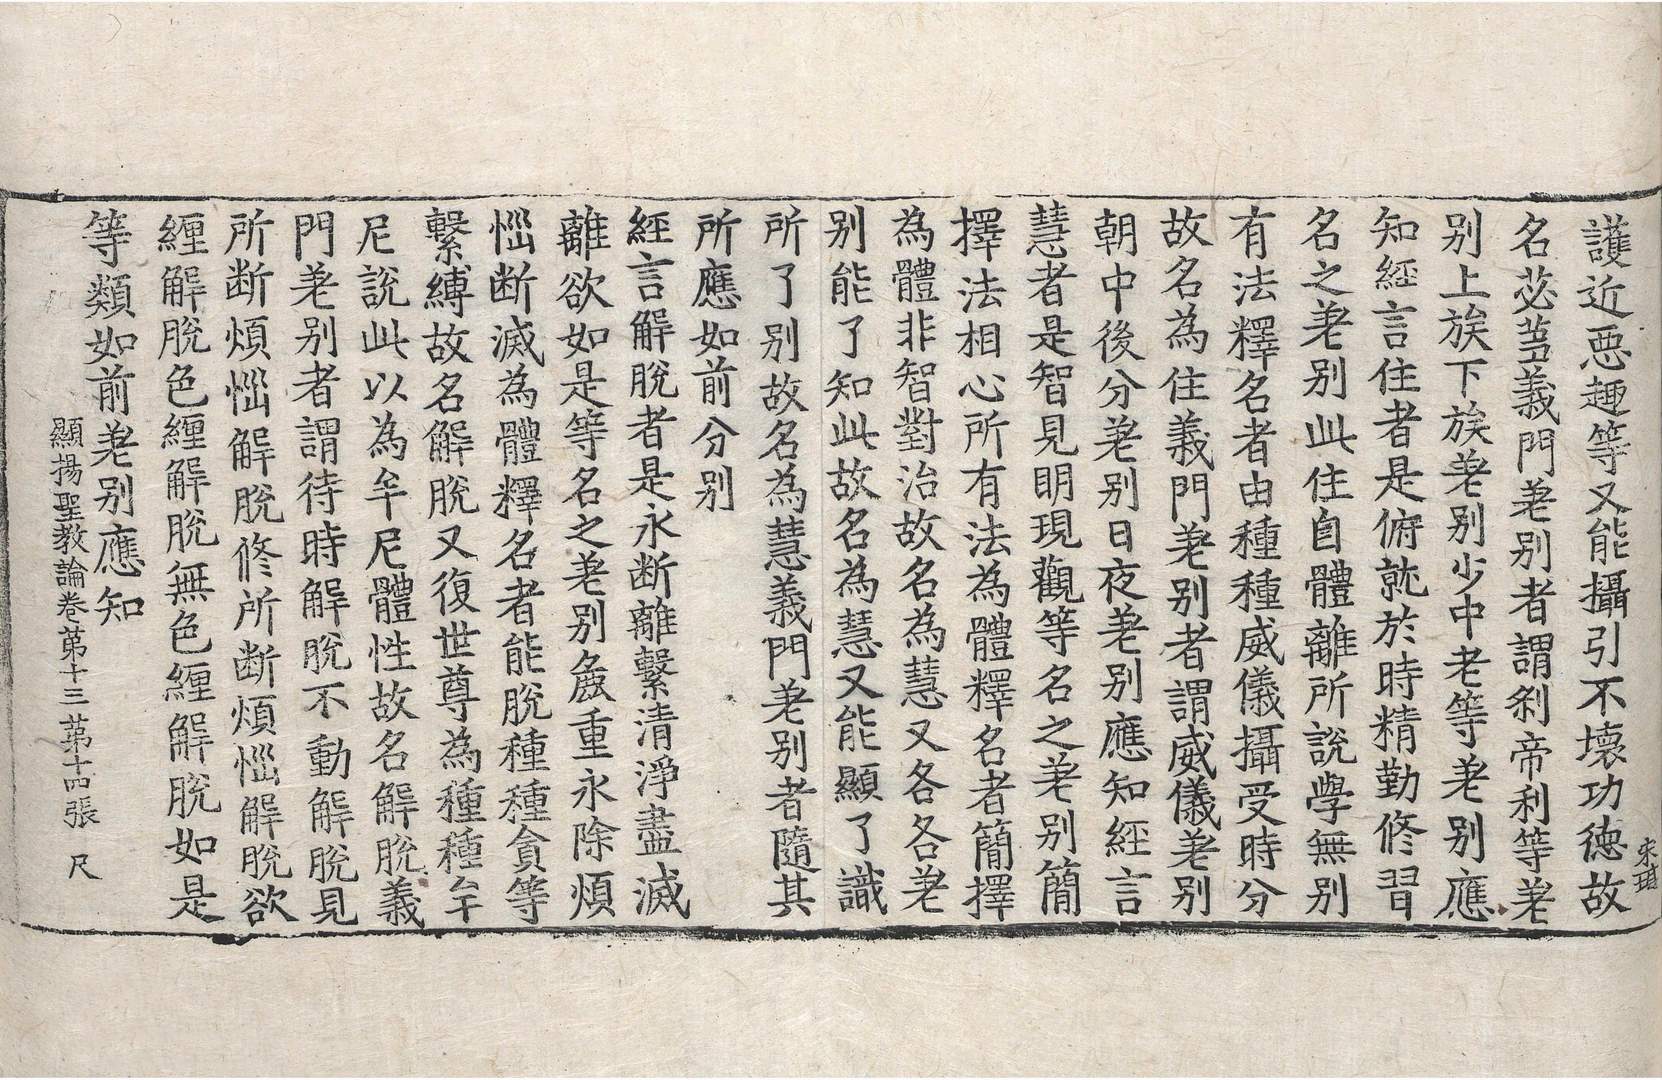 護近惡趣等又能攝引不壞功德故
名苾芻義門差別者謂刹帝利等差
別上族下族差別少中老等差別應
知經言住者是俯就於時精勤修習
名之差別此住自體離所說學無別
有法釋名者由種種威儀攝受時分
故名為住義門差別者謂威儀差別
朝中後分差別日夜差別應知經言
慧者是智見明現觀等名之差別簡
擇法相心所有法為體釋名者簡擇
為體非智對治故名為慧又各各差
別能了知此故名為慧又能顯了識
所了別故名為慧義門差別者隨其
所應如前分別
經言解脫者是永斷離繫清淨盡滅
離欲如是等名之差別麁重永除煩
惱斷滅為體釋名者能脫種種貪等
繫縛故名解脫又復世尊為種種牟
尼說此以為牟尼體性故名解脫義
門差別者謂待時解脫不動解脫見
所斷煩惱解脫修所斷煩惱解脫欲
纏解脫色纏解脫無色纏解脫如是
等類如前差別應知
顯揚聖教論卷第十三 第十四張 尺